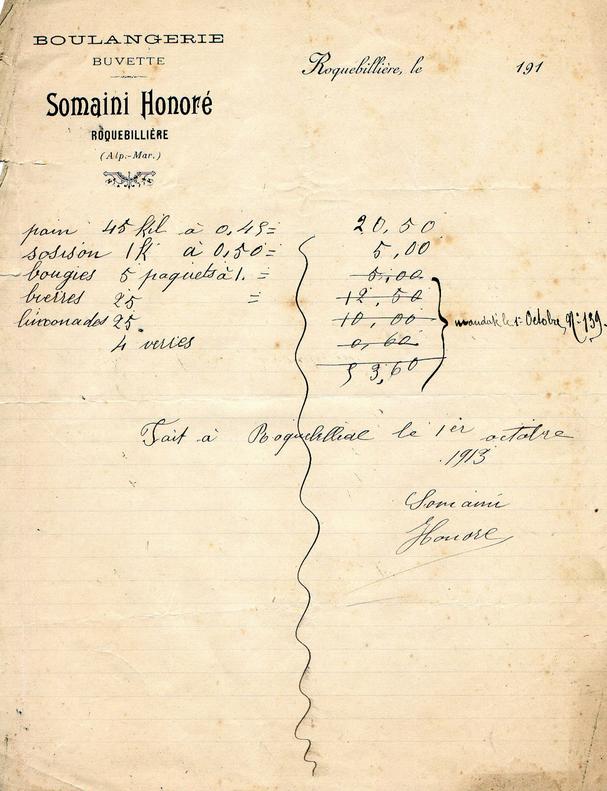 BOULANGERIE
BUVETTE
Somaini Honoré
ROQUEBILLIÈRE
(Alp.-Mar.)
Roquebillière, le 191
pain 45 kil à 0,45= 20,50
sosison 1k à 0,50= 5,00
bougies 5 paquets à 1. = 5,00
bierres 25 = 12,50
limonades 25 10,00
4 verres 0,60
53,60
mandaté le 1er Octobre, N° 139.
Fait à le 1er octobre
1913
Somaini
Honore